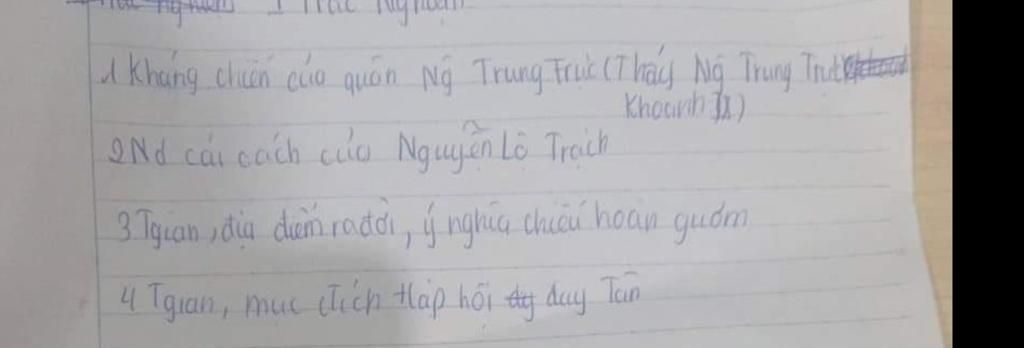 Trắc Nghiệm I Trắc Nghiệm
1 Kháng chiến của quân Ng Trung Trực (Thấy Ng Trung Trực
Khoanh)
2 Nd cải cách của Nguyễn Lộ Trạch
3 Tgian, địa điểm ra đời, ý nghĩa chiếu hoàn gươm
4 Tgian, mục đích tlập hội duy Tân